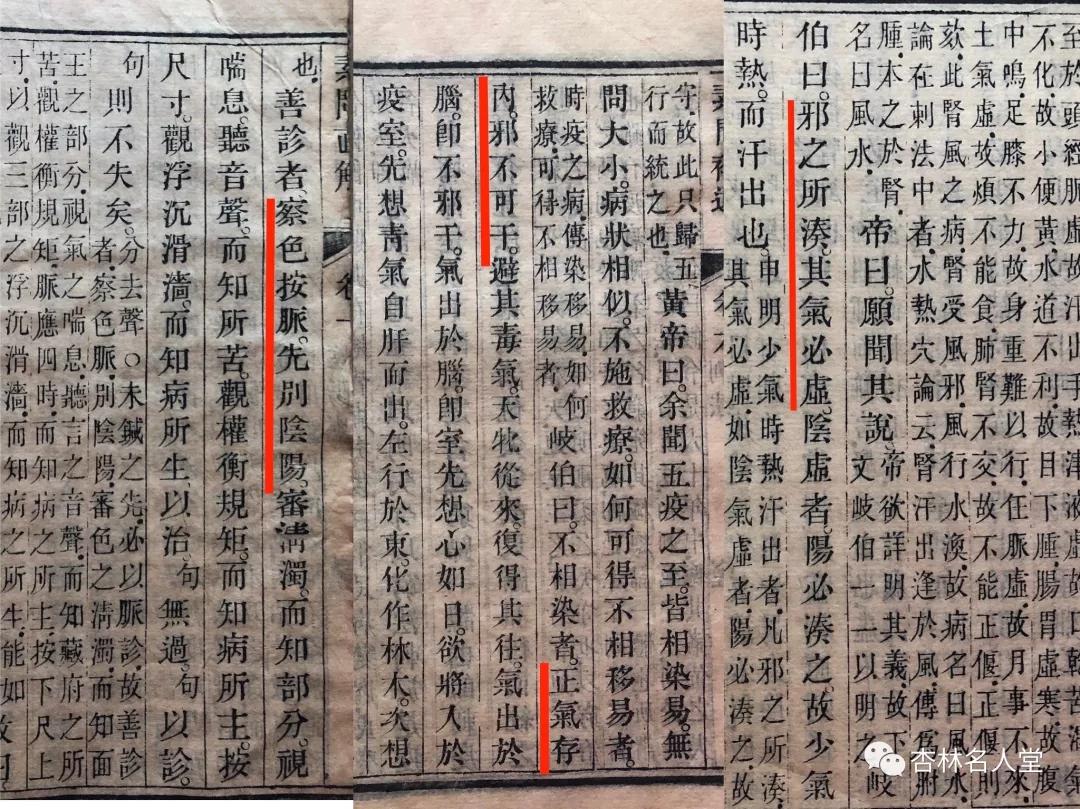 也善診者察色按脈先別陰陽審清濁而知部分視
喘息聽音聲而知所苦觀權衡規矩而知病所主按
尺寸觀浮沉滑濇而知病所生以治句無過句以診
句
則不失矣
分去聲○未鍼之先必以脈診故善診
者察色脈別陰陽審色之清濁而知面
王之部分視氣之喘息聽言之音聲而知藏府之所
苦觀權衡規矩脈應四時而知病之所主按下尺上
寸以觀三部之浮沉滑濇而知病之所生能如
守故此只歸五
行而統之也
黃帝曰余聞五疫之至皆相染易無
問大小病狀相似不施救療如何可得不相移易者
時疫之病傳染移易如何
救療可得不相移易者
岐伯曰不相染者正氣存
內邪不可干避其毒氣天牝從來復得其往氣出於
腦即不邪干氣出於腦即室先想心如日欲將入於
疫室先想青氣自肝而出左行於東化作林木次想
至於頭經脈虛故汗出手熱津液虛故口乾苦渴
不化故小便黃水道不利故目下腫腸胃虛寒故腹
中鳴足膝不力故身重難以行任脈虛故月事不來
土氣虛故煩不能食肺腎不交故不能正偃正偃則
欬此腎風之病腎受風邪風行水渙故病名曰風水
論在刺法中者水熱穴論云腎汗出逢於風傳為胕
腫本之於腎
名曰風水
帝曰願聞其說
帝欲詳明其義故下
文岐伯一一以明之
岐
伯曰邪之所湊其氣必虛陰虛者陽必湊之故少氣
時熱而汗出也
申明少氣時熱汗出者凡邪之所湊
其氣必虛如陰氣虛者陽必湊之故
杏林名人堂